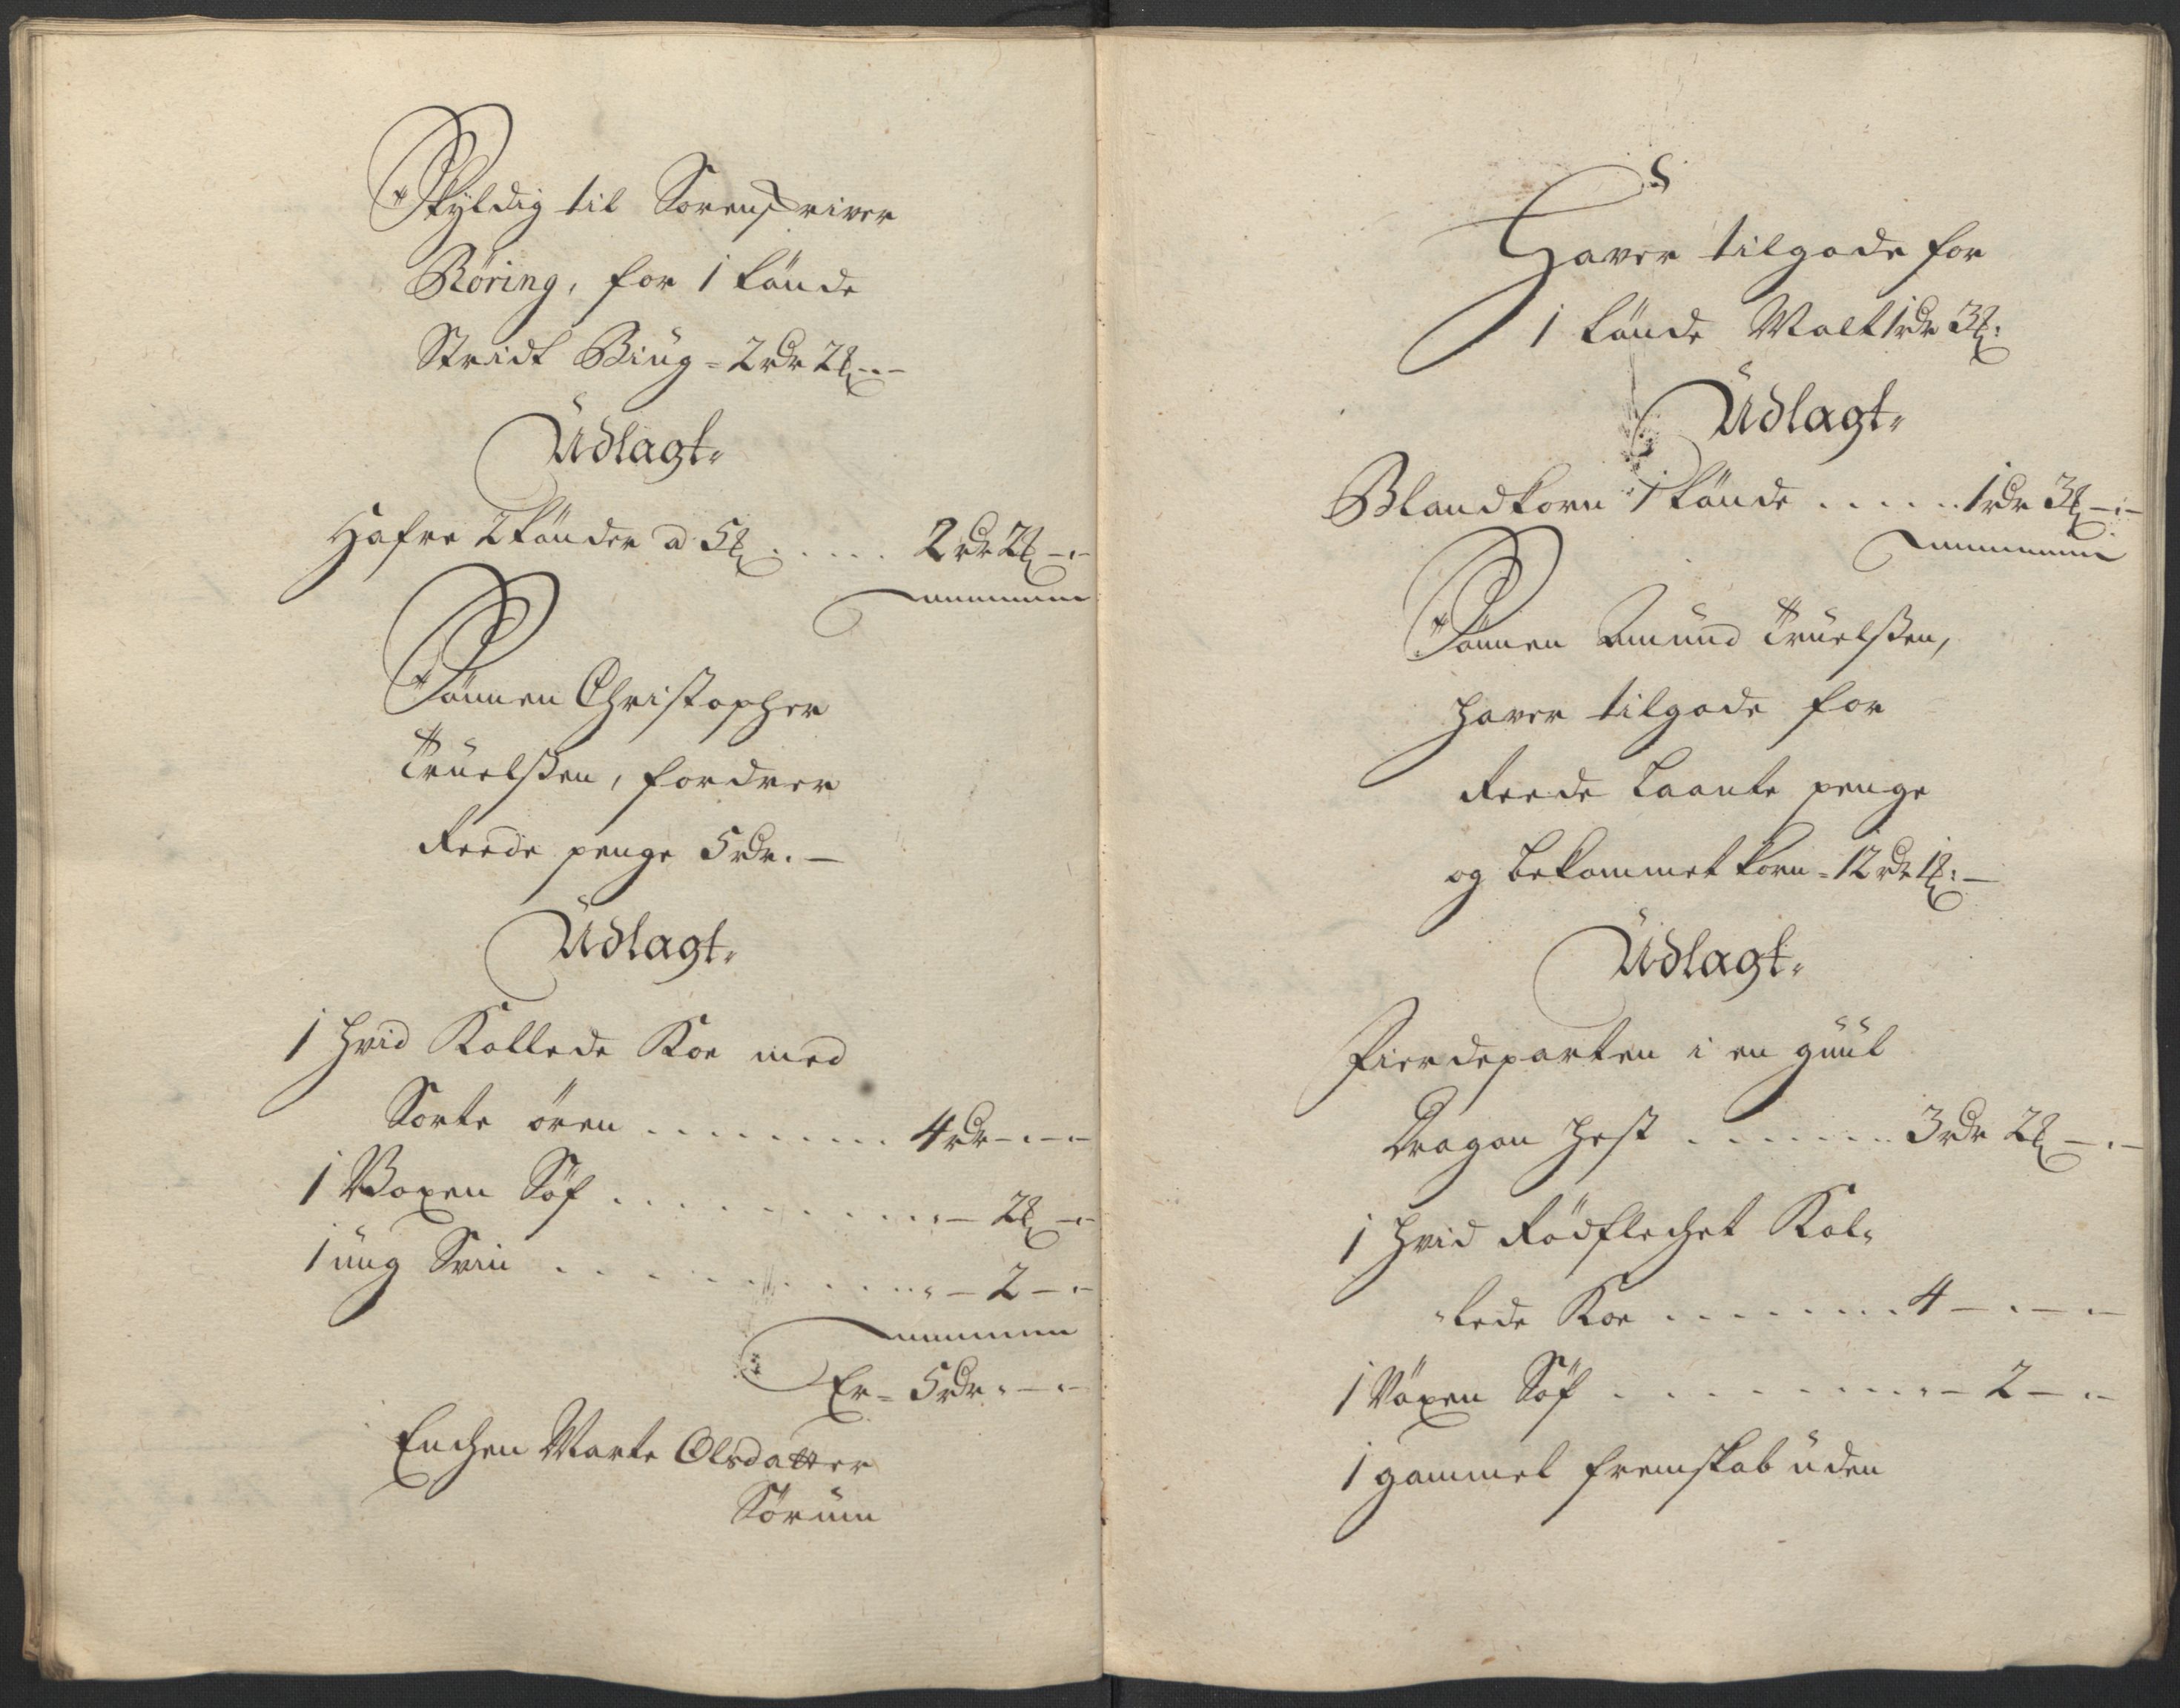 Skyldig til Sorenskriver
Röring, for 1 tönde
Stridt Biüg = 2 rdr 2 ß - . -
Üdlagt.
Hafre 2 tönder a 5 ß . . . . . 2 rdr 2 ß - . -
Sönnen Christopher
Trüelßen, fordrer
Reede penge 5 rdr. -
Üdlagt.
1 hvid Kollede Koe med
Sorte ören . . . . . . . . . 4 rdr - . -
1 Voxen Söf . . . . . . . . . . - 2 ß - . -
1 üng Sviin . . . . . . . . . . - 2 - . -
Er = 5 rdr . - . -
Enchen Marte Olsdatter
Sörüm
Haver tilgode for
1 tönde Malt 1 rdr 3 ß.
Üdlagt.
Blandkorn 1 tönde . . . . . . 1 rdr 3 ß - . -
Sönnen Amünd Trüelßen,
haver tilgode for
Reede laante penge
og bekommet korn = 12 rdr 1 ß : -
Üdlagt.
Fierdeparten i en güül
Dragon hest . . . . . . . 3 rdr 2 ß - . -
1 hvid Rödflechet Kol-
-lede Koe . . . . . . . . 4 - . - . -
1 Voxen Söf . . . . . . . . . - 2 - . -
1 gammel fremskab üden